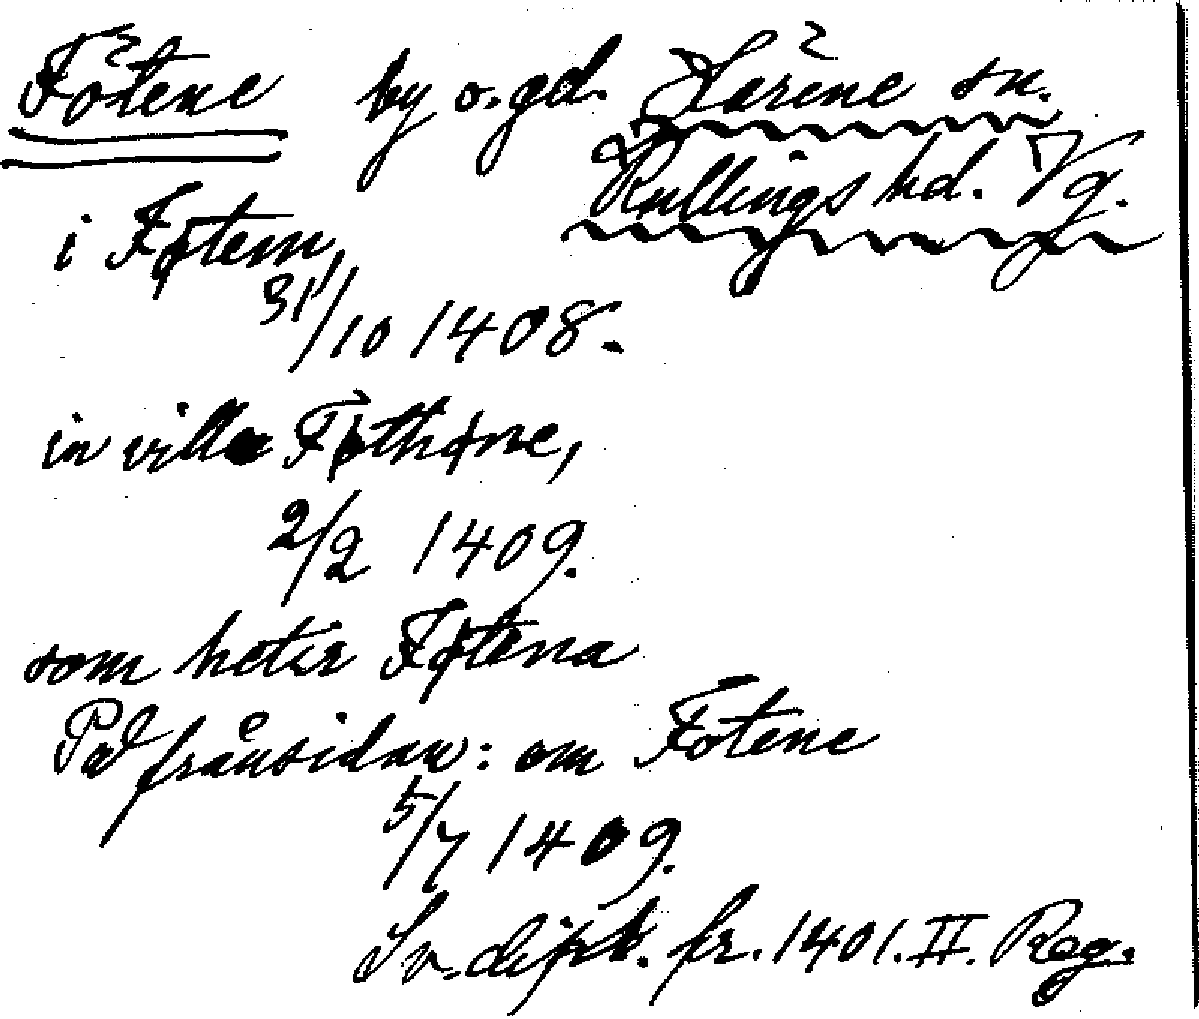 Fötene by o. gd. Härene sn.
Kullings hd. Vg.
i Føtem,
31/10 1408.
in villa Føthøne,
2/2 1409.
som heter Føtena
På frånsidan: om Fotene
5/7 1409.
Sv. dipl. fr. 1401. II. Reg.